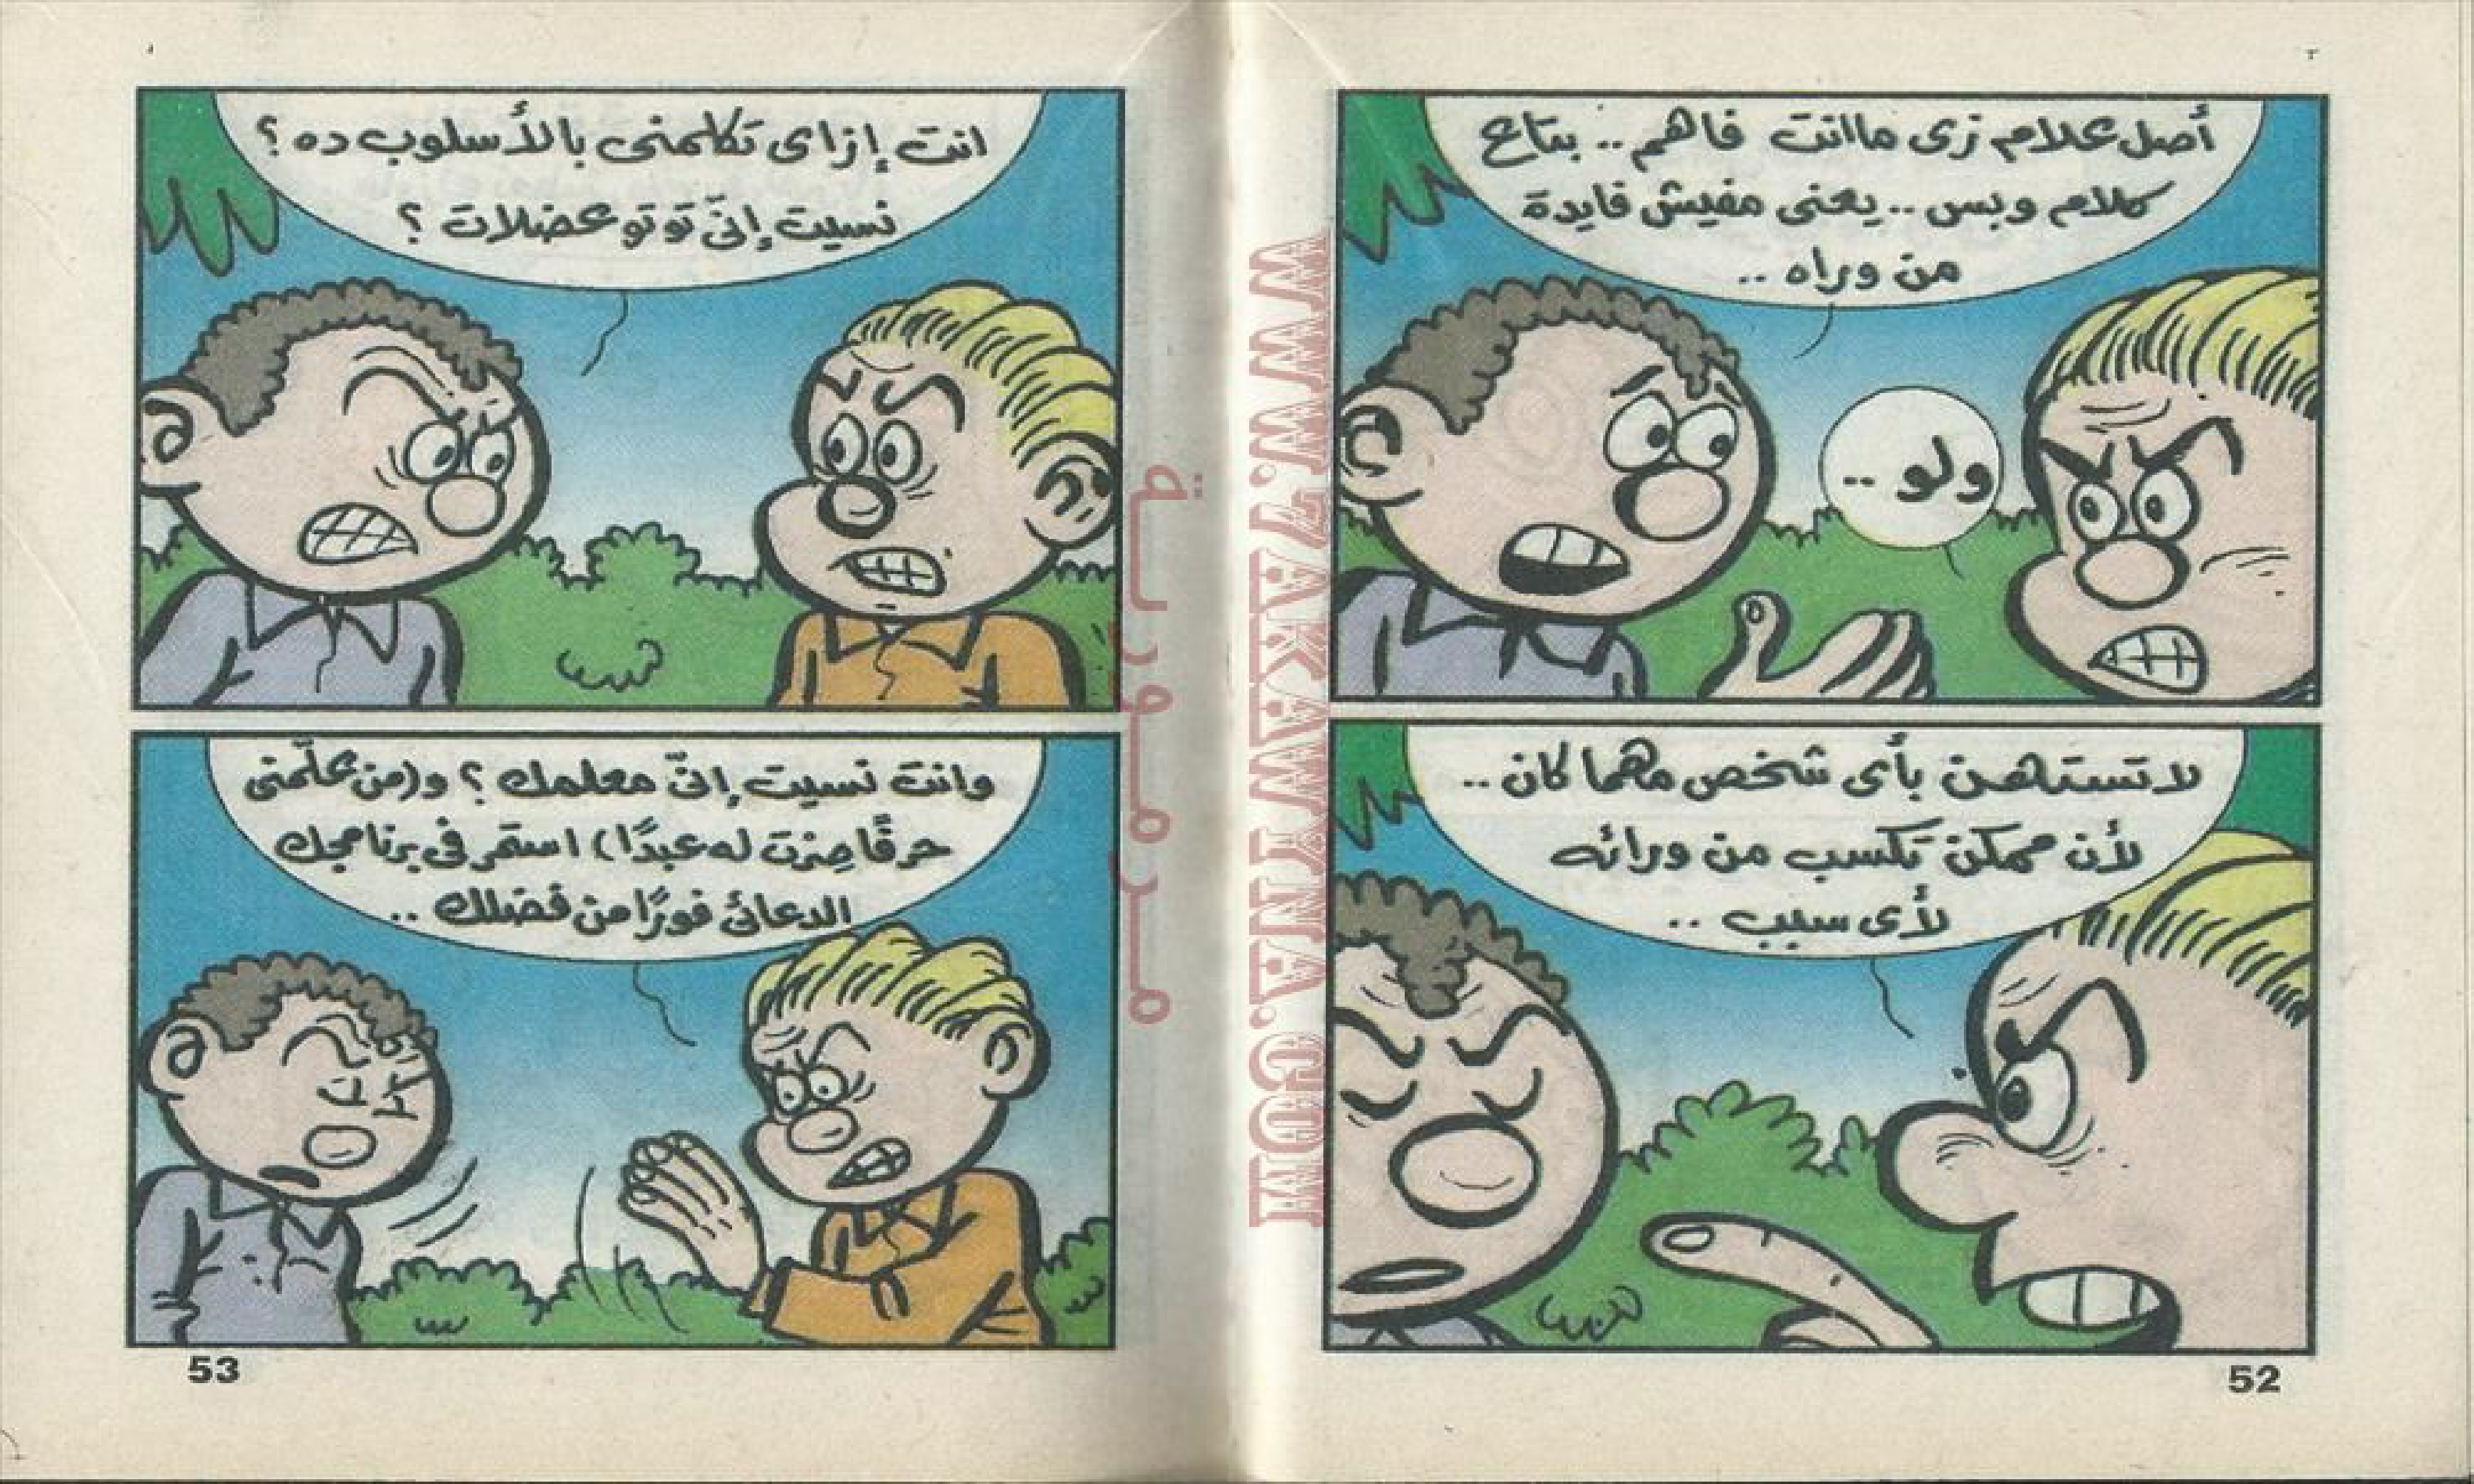 أصل علام زى ماانت فاهم .. بتاع
كلام وبس .. يعنى مفيش فايدة
من وراه ..
ولو ..
لا تستهن بأى شخص مهما كان ..
لأن ممكن تكسب من ورائه
لأى سبب ..
52
انت إزاى تكلمنى بالأسلوب ده ؟
نسيت إنّى توتو عضلات ؟
وانت نسيت إنّى معلمك ؟ و(من علّمنى
حرفًا صِرْت له عبدًا) استمر فى برنامجك
الدعائى فورًا من فضلك ..
53
WWW.7AKAWYNA.COM